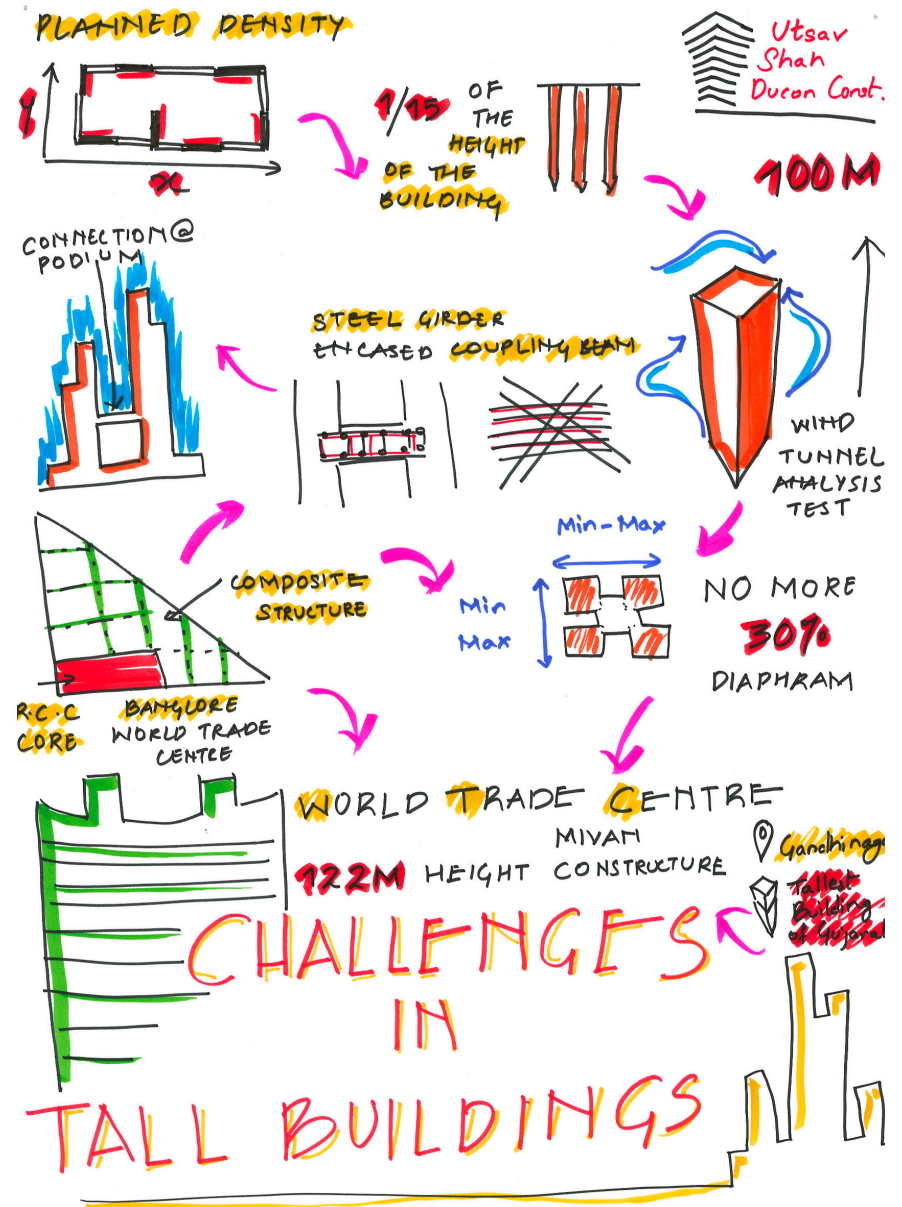 PLANNED DENSITY
Utsav
Shah
Ducon Const.
y
x
1/15 OF
THE
HEIGHT
OF THE
BUILDING
100M
CONNECTION@
PODIUM
STEEL GIRDER
ENCASED COUPLING BEAM
WIND
TUNNEL
ANALYSIS
TEST
Min-Max
Min
Max
NO MORE
30%
DIAPHRAM
COMPOSITE
STRUCTURE
R.C.C
CORE
BANGLORE
WORLD TRADE
CENTRE
WORLD TRADE CENTRE
MIVAN
122M HEIGHT CONSTRUCTURE
Gandhinaga
Tallest
Building
of Gujarat
CHALLENGES
IN
TALL BUILDINGS